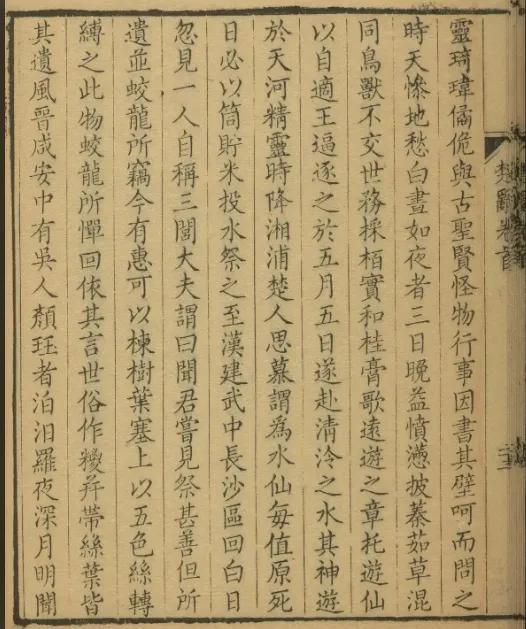 靈琦瑋僪佹與古聖賢怪物行事因書其壁呵而問之
時天慘地愁白晝如夜者三日晚益憤懣披蓁茹草混
同鳥獸不交世務採栢實和桂膏歌遠遊之章托遊仙
以自適王逼逐之於五月五日遂赴清泠之水其神遊
於天河精靈時降湘浦楚人思慕謂爲水仙每值原死
日必以筒貯米投水祭之至漢建武中長沙區回白日
忽見一人自稱三閭大夫謂曰聞君嘗見祭甚善但所
遺並蛟龍所竊今有惠可以楝樹葉塞上以五色絲轉
縛之此物蛟龍所憚回依其言世俗作糉并帶絲葉皆
其遺風晉咸安中有吳人顏珏者泊汨羅夜深月明聞